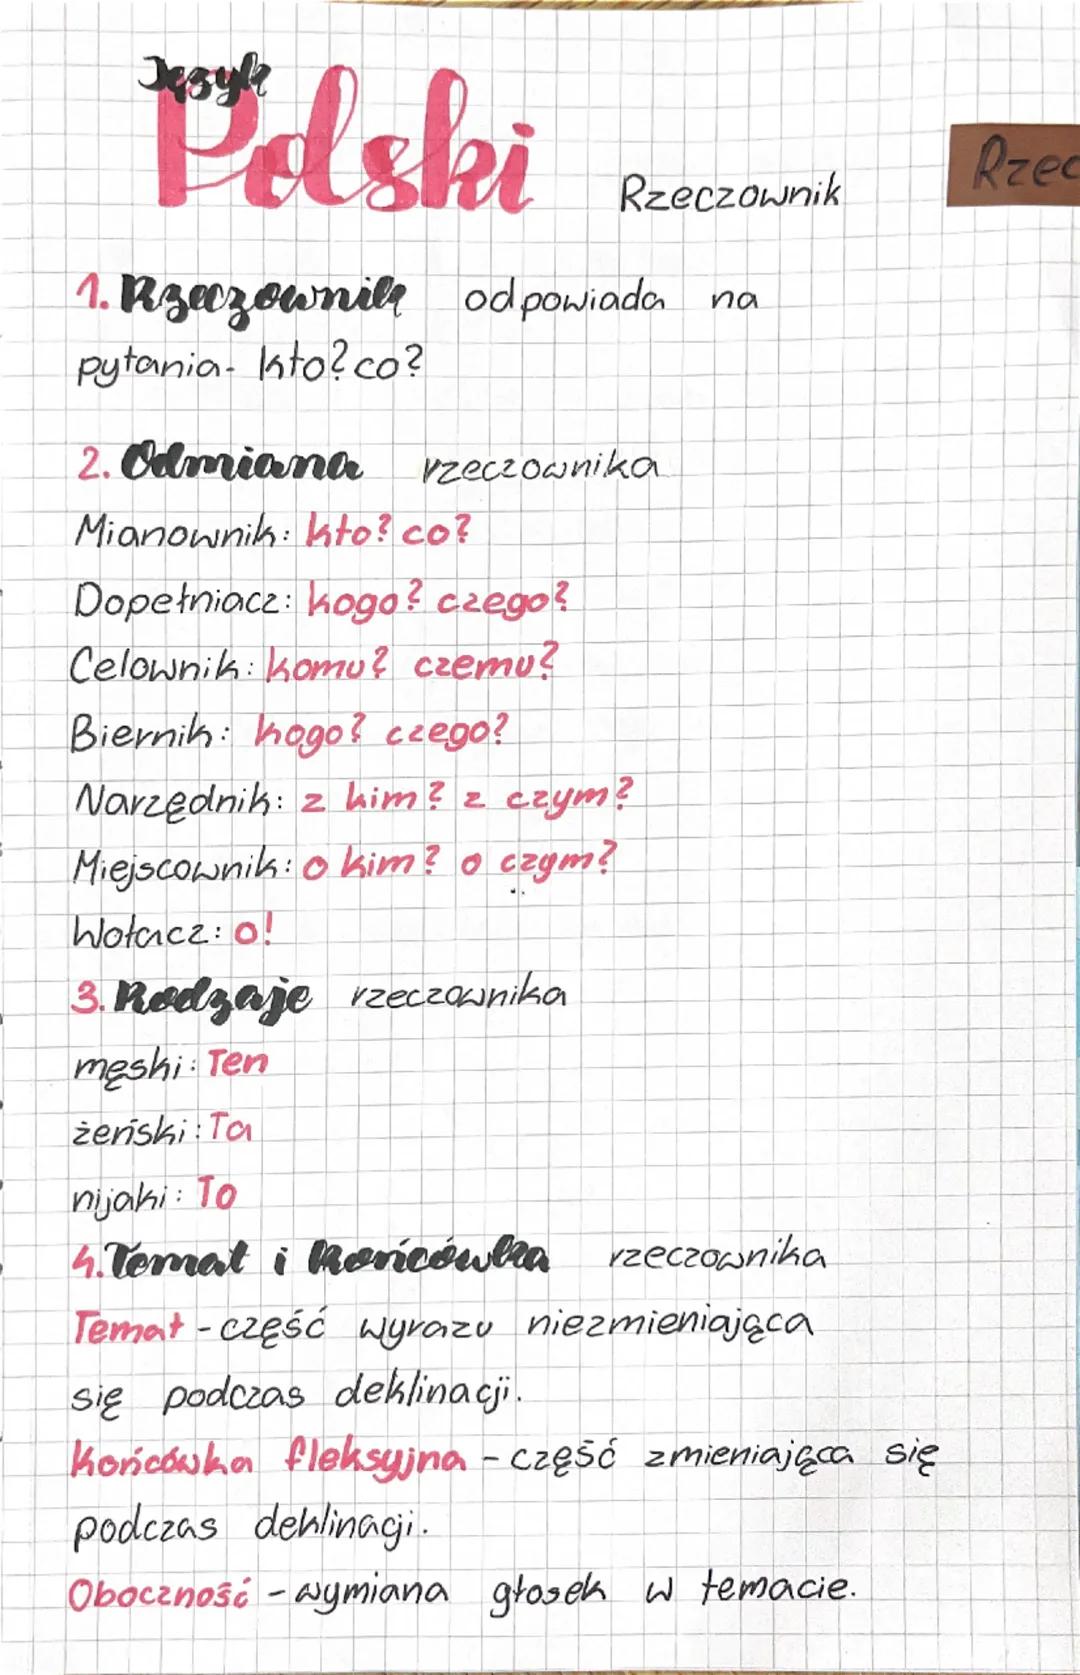 Język
Polski
Rzeczownik
Rzec
1. Rzeczownik odpowiada na
pytania- kto? co?
2. Odmiana rzeczownika
Mianownik: kto? co?
Dopełniacz: kogo? czego?
Celownik: komu? czemu?
Biernik: kogo? czego?
Narzędnik: z kim? z czym?
Miejscownik: o kim? o czym?
Wołacz: o!
3. Rodzaje rzeczownika
męski: Ten
żeński: Ta
nijaki: To
4. Temat i Końcówka rzeczownika
Temat - część wyrazu niezmieniająca
się podczas deklinacji.
Końcówka fleksyjna - część zmieniająca się
podczas deklinacji.
Oboczność - wymiana głosek w temacie.